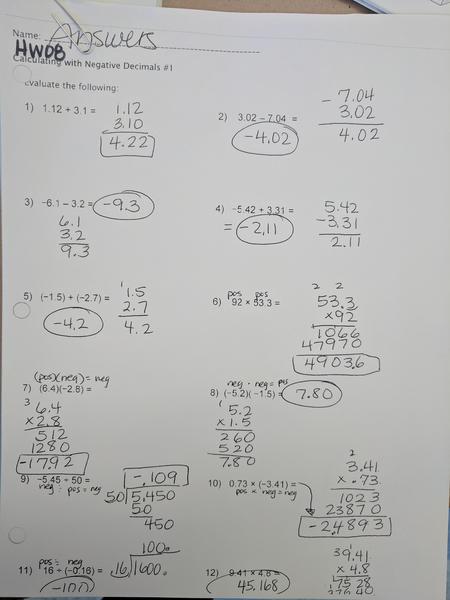 Name: Answers
HWDB
Calculating with Negative Decimals #1
Evaluate the following:
1) 1.12 + 3.1 =
1.12
3.10
4.22
2) 3.02 – 7.04 =
-4.02
- 7.04
3.02
4.02
3) -6.1 – 3.2 = -9.3
6.1
3.2
9.3
4) -5.42 + 3.31 =
= -2.11
5.42
-3.31
2.11
5) (-1.5) + (-2.7) =
-4.2
1
1.5
2.7
4.2
pos pos
6) 92 × 53.3 =
2 2
53.3
×92
1066
47970
4903.6
(pos)(neg) = neg
7) (6.4)(-2.8) =
3
6.4
×2.8
512
1280
-17.92
neg · neg = pos
8) (-5.2)(-1.5) = 7.80
1
5.2
×1.5
260
520
7.80
9) -5.45 ÷ 50 =
neg ÷ pos = neg
-.109
50 5.450
50
450
10) 0.73 × (-3.41) =
pos × neg = neg
2
3.41
× .73
1023
23870
-2.4893
pos ÷ neg
11) 16 ÷ (-0.16) =
-100
100.
.16 1600.
12) 9.41 × 4.8 =
45.168
3
9.41
× 4.8
7528